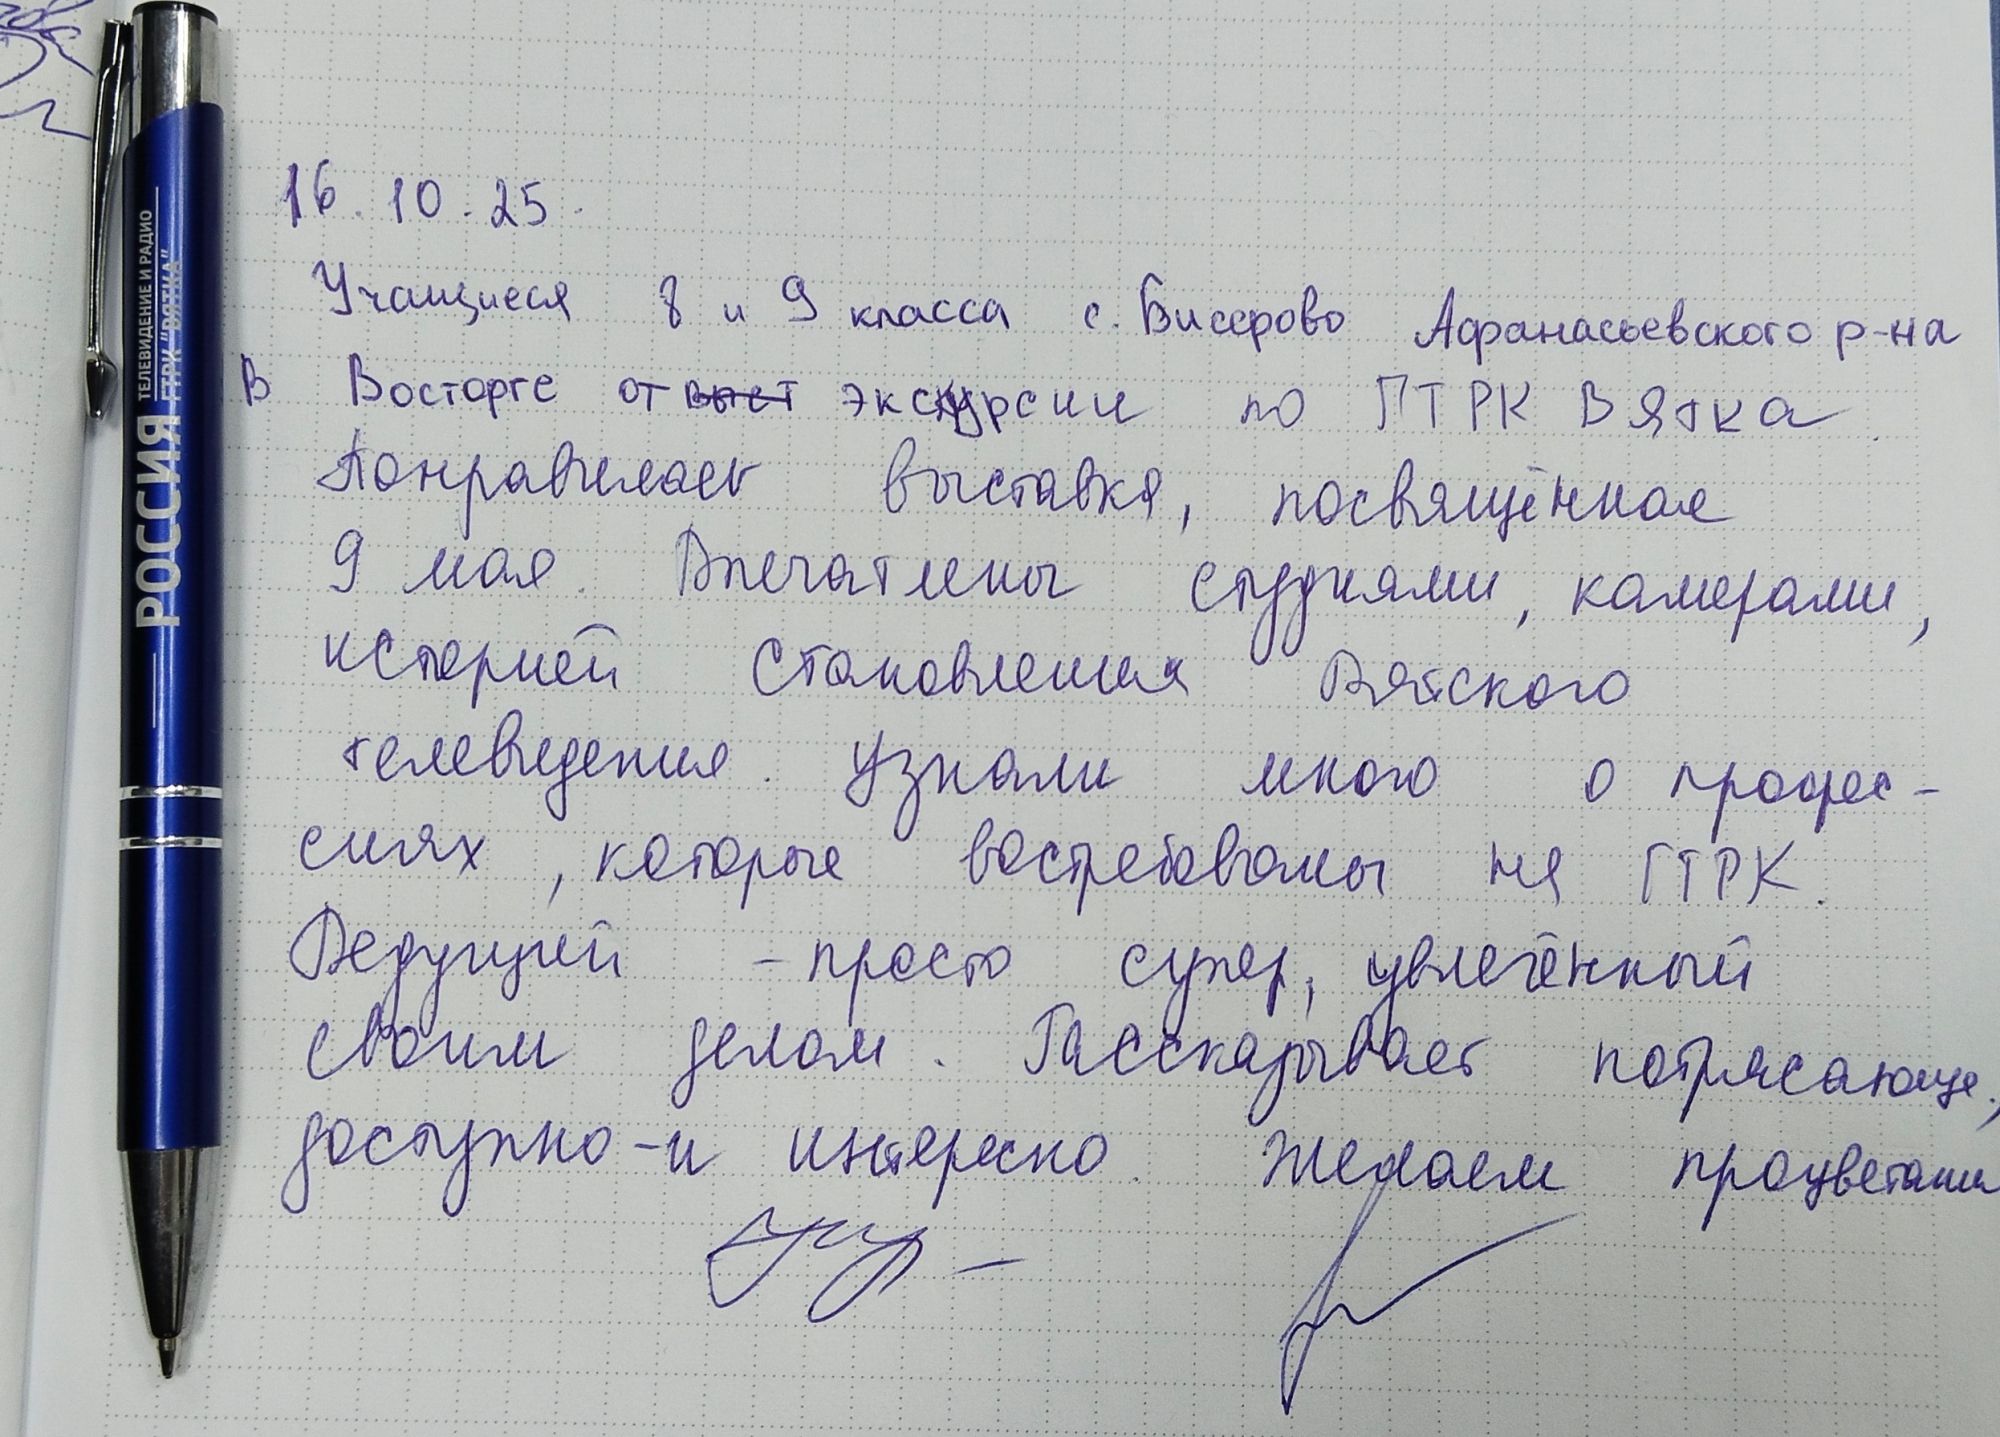 16.10.25.
Учащиеся 8 и 9 класса с. Бисерово Афанасьевского р-на
В Восторге от выст экскурсии по ГТРК Вятка.
Понравилась выставка, посвящённая
9 мая. Впечатлены студиями, камерами,
историей становления Вятского
телевидения. Узнали много о профес-
сиях, которые востребованы на ГТРК.
Ведущий - просто супер, увлечённый
своим делом. Рассказывает потрясающе,
доступно и интересно. Желаем процветания
РОССИЯ
ТЕЛЕВИДЕНИЕ И РАДИО
ГТРК "ВЯТКА"